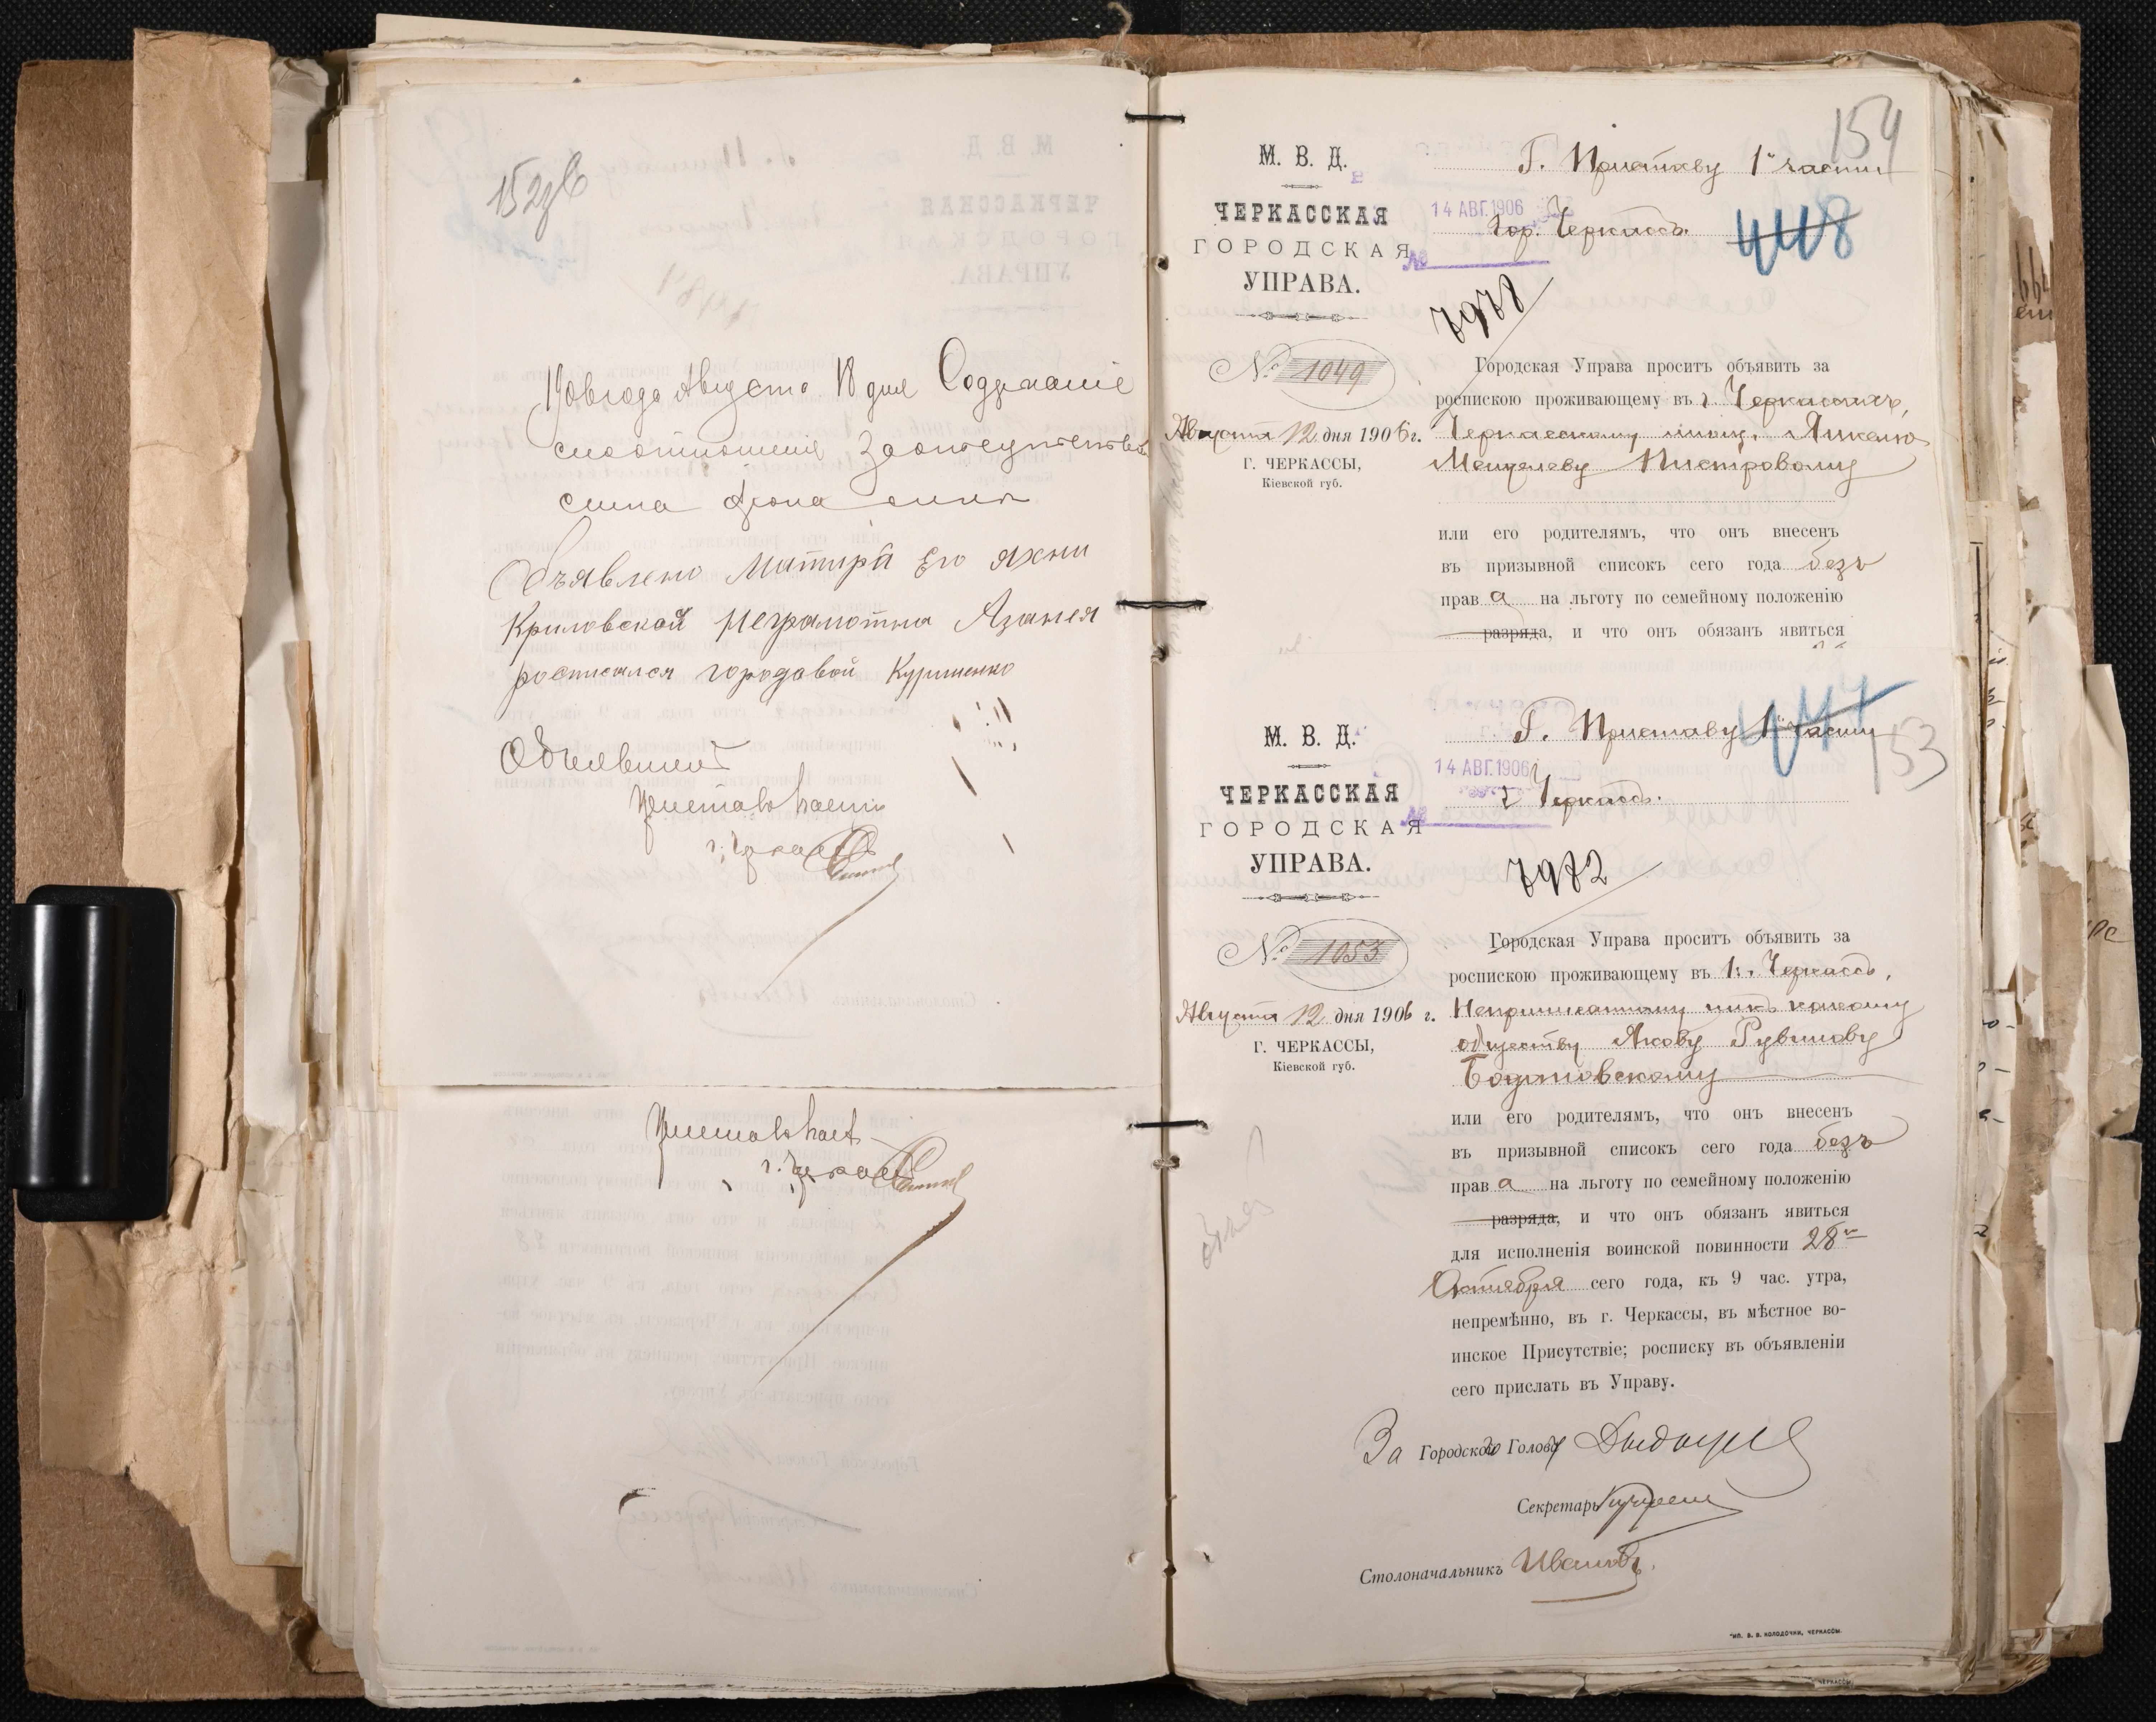 152об
1906 года Августа 18 дня Содержаніе
сына
Объявлено Матири Его Яхни
Криловской неграмотна Азанея
росписался городавой Куриленко
Объявилъ
Приставъ части
г. Черкассъ
Приставъ част
г. Черкассъ
154
М. В. Д.
ЧЕРКАССКАЯ
ГОРОДСКАЯ
УПРАВА.
№ 1049
Августа 12 дня 1906 г.
Г. ЧЕРКАССЫ,
Кіевской губ.
Г. Приставу 1й части
14 АВГ. 1906
гор. Черкассъ
448
№
7978
Городская Управа проситъ объявить за
роспискою проживающему въ г. Черкассахъ,
Черкасскому мѣщ. Янкелю
Менделеву Пистровому
или его родителямъ, что онъ внесенъ
въ призывной списокъ сего года безъ
права на льготу по семейному положенію
разряда, и что онъ обязанъ явиться
М. В. Д.
ЧЕРКАССКАЯ
ГОРОДСКАЯ
УПРАВА.
№ 1053
Августа 12 дня 1906 г.
Г. ЧЕРКАССЫ,
Кіевской губ.
447
Г. Приставу 1й части
153
14 АВГ. 1906
г. Черкассъ.
№
7982
Городская Управа проситъ объявить за
роспискою проживающему въ г. Черкассъ,
Неприписанному ни къ какому
обществу Якову Рувинову
Бодановскому
или его родителямъ, что онъ внесенъ
въ призывной списокъ сего года безъ
права на льготу по семейному положенію
разряда, и что онъ обязанъ явиться
для исполненія воинской повинности 28го
Октября сего года, къ 9 час. утра,
непремѣнно, въ г. Черкассы, въ мѣстное во-
инское Присутствіе; росписку въ объявленіи
сего прислать въ Управу.
За Городского Голову
Секретарь
Столоначальникъ Ивановъ.
ТИП. В. В. КОЛОДОЧКИ, ЧЕРКАССЫ
ЧЕРКАССЫ